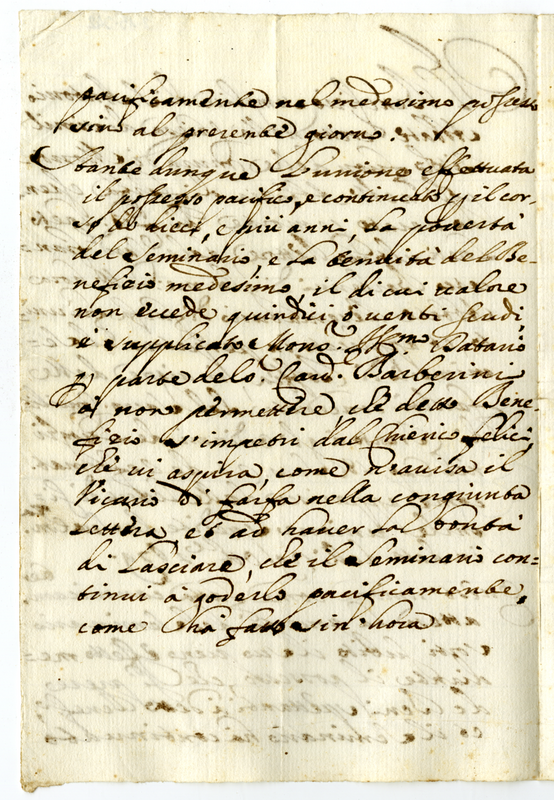 pacificamente nel medesimo possesso
sino al presente giorno.
Stante dunque l'unione effettuata
il possesso pacifico, e continuato p il cor-
so di dieci, e più anni, la povertà
del Seminario e la tenuità del Be-
nefizio medesimo il di cui valore
non eccede quindici ò venti scudi,
è supplicato Mons.r Ill.mo Datario
p parte del S.r Card. Barberini
à non permettere, che detto Bene-
fizio s'impetri dal Chierico felici,
che vi aspira, come n'avisa il
Vicario di farfa nella congiunta
lettera, et ad haver la bontà
di lasciare, che il Seminario con-
tinui à goderlo pacificamente,
come hà fatto sin' hora